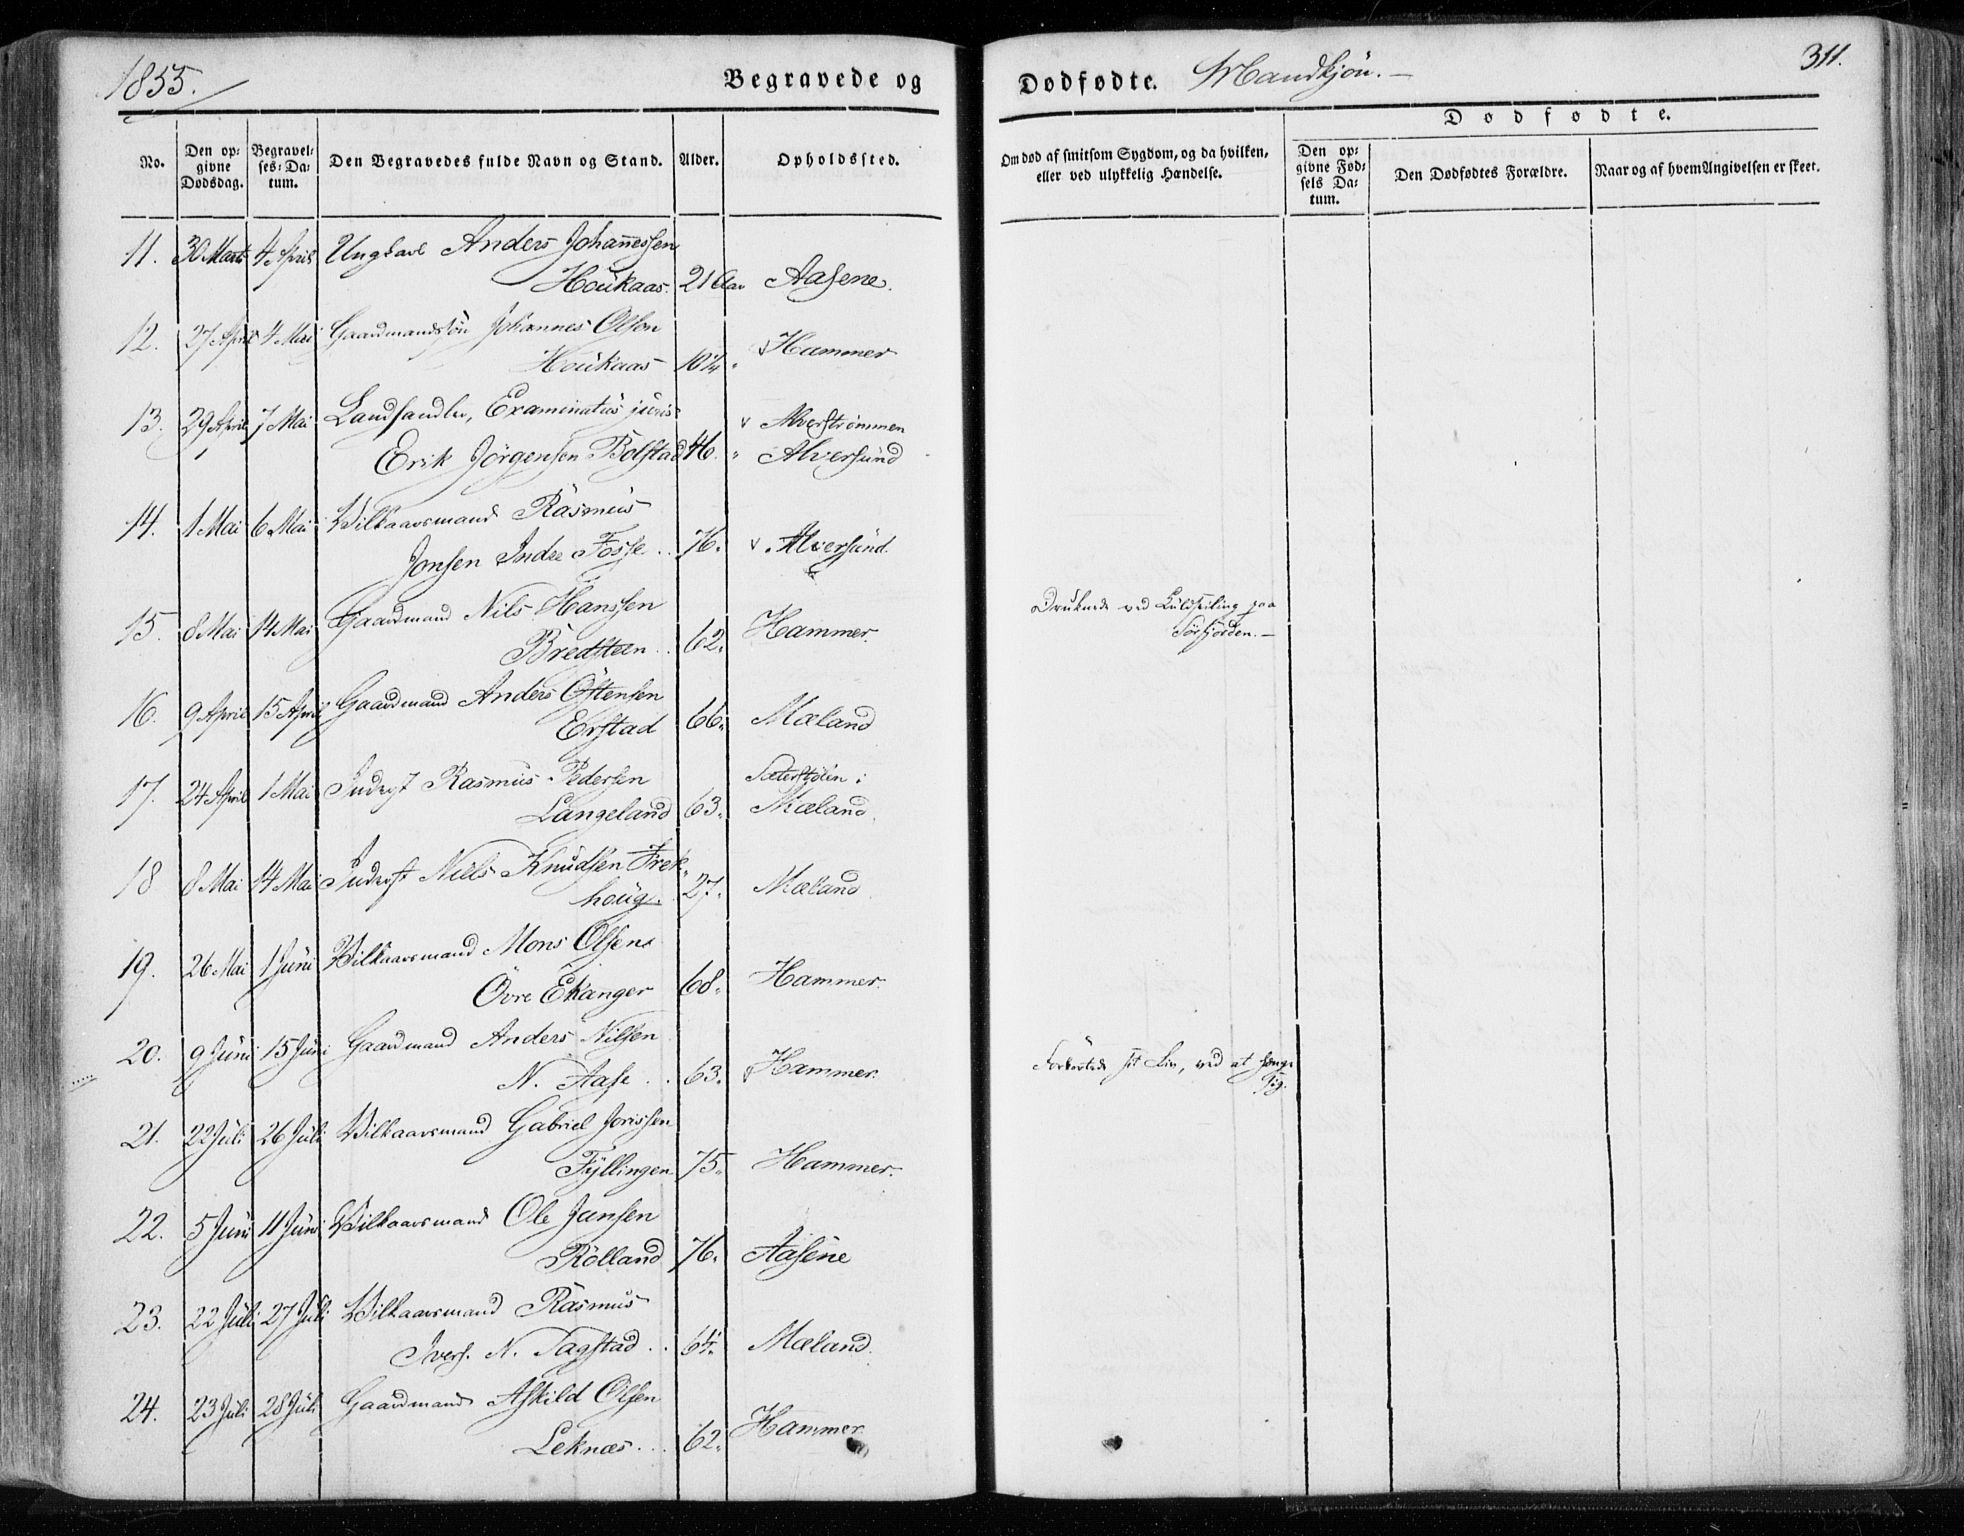 1855.
Begravede og
Dødfødte. Mandkjön.
311.
No.
Den op= givne Dødsdag.
Begravel= ses= Da= tum.
Den Begravedes fulde Navn og Stand.
Alder.
Opholdssted.
Om død af smitsom Sygdom, og da hvilken, eller ved ulykkelig Hændelse.
Dødfødte.
Den op= givne Fød= sels Da= tum.
Den Dødfødtes Forældre.
Naar og af hvem Angivelsen er skeet.
11. 30 Marts 4 April Ungkarl Anders Johannessen
Houkaas. 21 Aar Aasene.
12. 27 April 4 Mai Gaardmandssön Johannes Olsen
Houkaas 10 1/4 " Hammer
13. 29 April 7 Mai Landhandler, Examinatus juris
Alverströmmen
Erik Jörgensen Bolstad 46. " Alversund
14. 1 Mai 6 Mai Vilkaarsmand Rasmus
Jonsen Indre Fosse .. 76. Alversund.
15. 8 Mai 14 Mai Gaardmand Nils Hanssen
Bredsteen .. 62. Hammer.
Druknede ved Kuldseiling paa
Sörfjorden. —
16. 9 April 15 April Gaardmand Anders Östensen
Erstad 66. Mæland
17. 24 April 1 Mai Inderst Rasmus Pedersen
Sæterstölen i
Langeland 63. Mæland.
18 8 Mai 14 Mai Inderst Niels Knudsen Frek=
houg. 27. Mæland.
19. 26 Mai 1 Juni Vilkaarsmand Mons Olsen
Övre Ekanger 68. Hammer.
20. 9 Juni 15 Juni Gaardmand Anders Nilsen
N. Aase .. 63. Hammer.
Forkortede sit Liv, ved at hænge
sig.
21. 22 Juli 26 Juli Vilkaarsmand Gabriel Jorissen
Fyllingen 75. Hammer.
22. 5 Juni 11 Juni Vilkaarsmand Ole Jansen
Rölland 76. Aasene
23. 22 Juli 27 Juli Vilkaarsmand Rasmus
Ivers. N. Tagstad .. 64. Mæland.
24. 23 Juli 28 Juli Gaardmand Askild Olsen
Leknæs ... 62. Hammer.